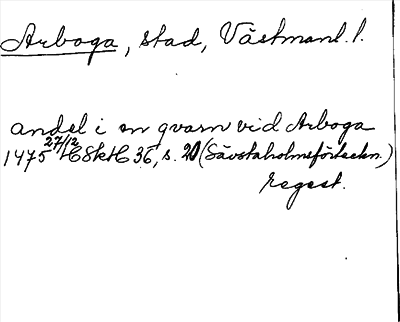 Arboga, stad, Västmanl. l.
andel i en qvarn vid Arboga
1475 27/12 C Skt C 36, s. 20 (Sävstaholmsförteckn.)
regest.